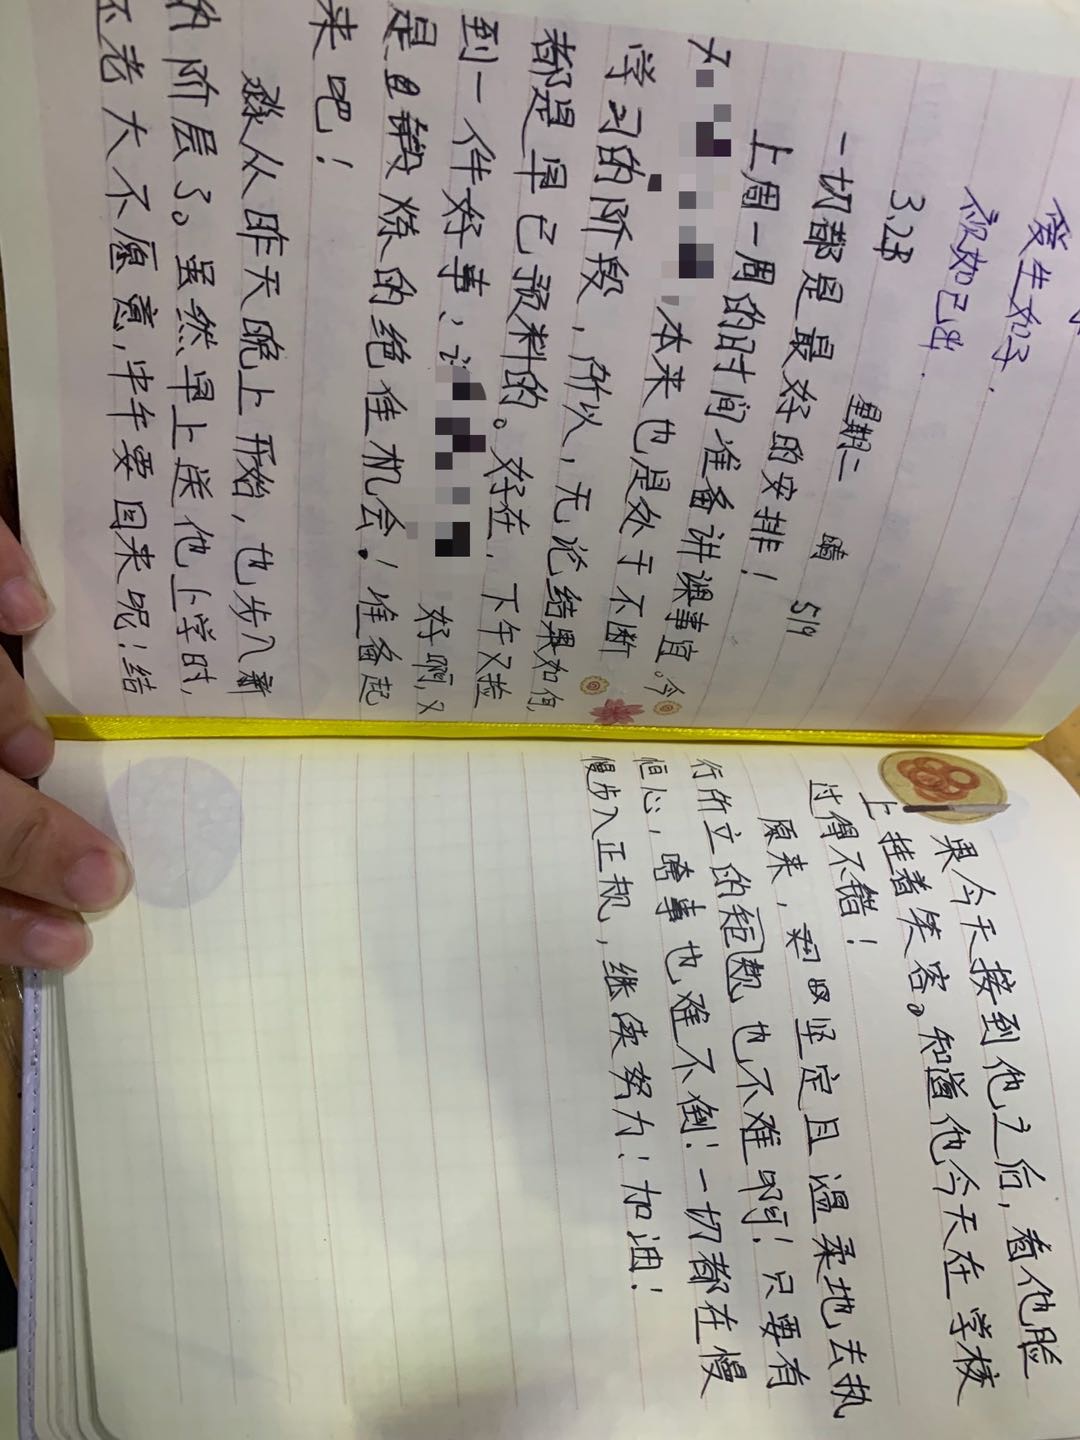 爱生如子.
视如己出.
3.28 星期二 晴 519
一切都是最好的安排！
上周一周的时间准备讲课事宜。今
天 ,本来也是处于不断
学习的阶段，所以，无论结果如何,
都是早已预料的。好在，下午又捡
到一件好事， 好啊，又
是锻炼的绝佳机会！准备起
来吧！
从昨天晚上开始，也步入新
的阶层了。虽然早上送他上学时，
还老大不愿意，中午要回来呢！结
果今天接到他之后，看他脸
上挂着笑容。知道他今天在学校
过得不错！
原来， 坚定且温柔地去执
行所立的规矩也不难啊！只要有
恒心，啥事也难不倒！一切都在慢
慢步入正规，继续努力！加油！